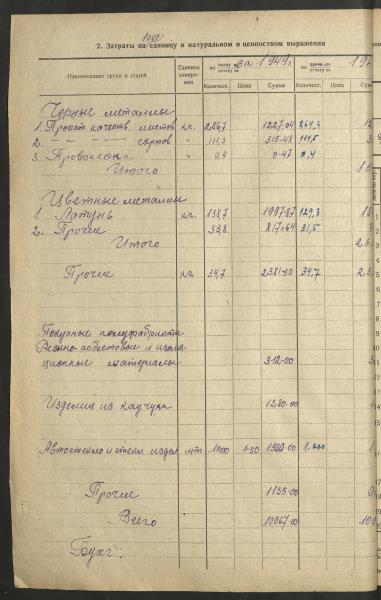 1000
2. Затраты на единицу в натуральном и ценностном выражении
Наименование групп и статей Единица измерения по плану отчету за 1949г. по отчету за 19
Количест. Цена Сумма Количест. Цена Сумма
Черные металлы
1. Прокат качеств. листов кг. 266,7 1227-04 264,3 12
2. — " — — сортов " 111,3 315-48 114,5 3
3. Проволока " 0,4 0-47 0,4
Итого 15
Цветные металлы
1. Латунь кг. 138,7 1997-27 129,3 18
2. Прочие 33,8 817-64 31,5
Итого 26
Прочие кг. 34,7 2381-00 34,7 23
Покупные полуфабрикаты
Резино-асбестовые и изоля-
ционные материалы 312-00 3
Изделия из каучука 1280-00 1
Автостекло и стекл. издел. шт 1000 1-50 1500-00 1.000 1
Прочие 1135-00
Всего 10967-00 10
Бухг.